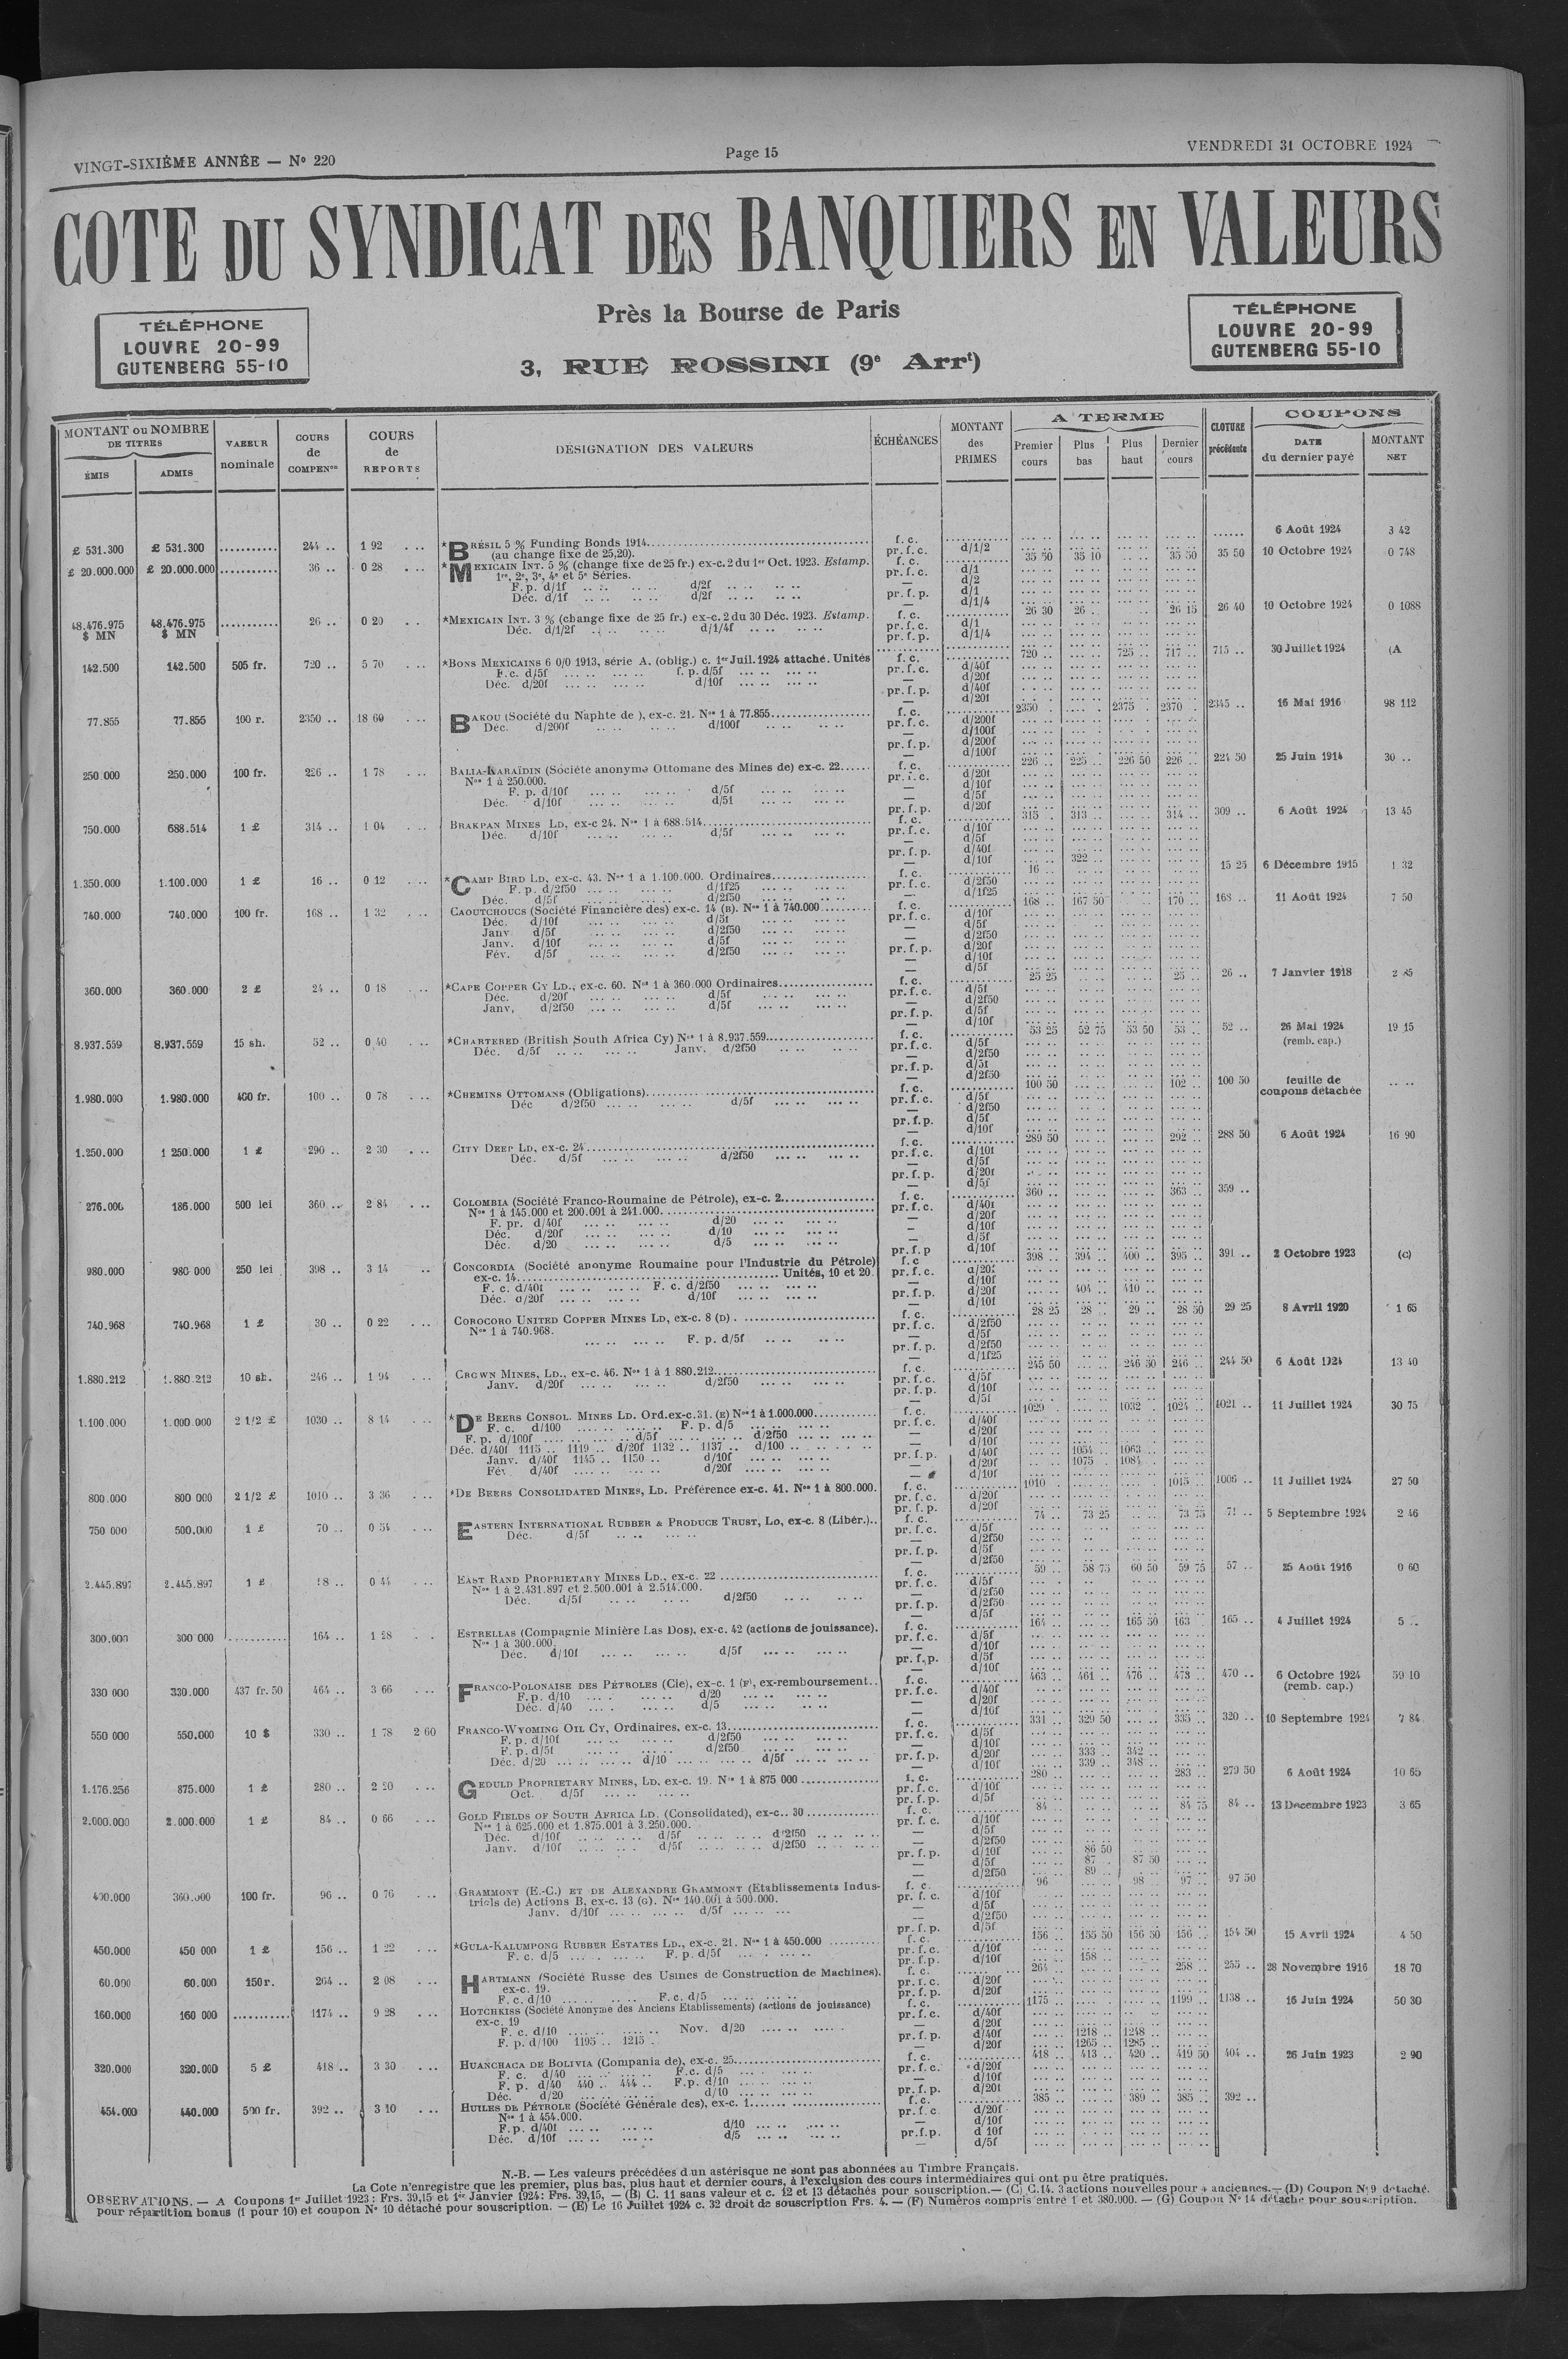 VINGT-SIXIÈME ANNÉE — Nº 220
Page 15
VENDREDI 31 OCTOBRE 1924
COTE DU SYNDICAT DES BANQUIERS EN VALEURS
Près la Bourse de Paris
3, RUE ROSSINI (9e Arrt)
TÉLÉPHONE
LOUVRE 20-99
GUTENBERG 55-10
TÉLÉPHONE
LOUVRE 20-99
GUTENBERG 55-10
MONTANT ou NOMBRE DE TITRES
ÉMIS
ADMIS
VALEUR nominale
COURS de COMPENon
COURS de REPORTS
DÉSIGNATION DES VALEURS
ÉCHÉANCES
MONTANT des PRIMES
A TERME
Premier cours
Plus bas
Plus haut
Dernier cours
CLOTURE précédente
COUPONS
DATE du dernier payé
MONTANT NET
£ 531.300 £ 531.300 244 .. 1 92 *BRÉSIL 5 % Funding Bonds 1914 f. c. 6 Août 1924 3 42
(au change fixe de 25,20). pr. f. c. d/1/2
£ 20.000.000 £ 20.000.000 36 .. 0 28 *MEXICAIN INT. 5 % (change fixe de 25 fr.) ex-c. 2 du 1er Oct. 1923. Estamp. f. c. 35 50 35 10 35 50 35 50 10 Octobre 1924 0 748
1re, 2e, 3e, 4e et 5e Séries. pr. f. c. d/1
F. p. d/1f d/2f — d/2
Déc. d/1f d/2f pr. f. p. d/1
— d/1/4
48.476.975 $ MN 48.476.975 $ MN 26 .. 0 20 *MEXICAIN INT. 3 % (change fixe de 25 fr.) ex-c. 2 du 30 Déc. 1923. Estamp. f. c. 26 30 26 .. 26 15 26 40 10 Octobre 1924 0 1088
Déc. d/1/2f d/1/4f pr. f. c. d/1
pr. f. p. d/1/4
142.500 142.500 505 fr. 720 .. 5 70 *BONS MEXICAINS 6 0/0 1913, série A. (oblig.) c. 1er Juil. 1924 attaché. Unités f. c. 720 .. 725 .. 717 .. 715 .. 30 Juillet 1924 (A
F. c. d/5f f. p. d/5f pr. f. c. d/40f
Déc. d/20f d/10f — d/20f
pr. f. p. d/40f
— d/20f
77.855 77.855 100 r. 2350 .. 18 60 BAKOU (Société du Naphte de ), ex-c. 21. Nos 1 à 77.855 f. c. 2350 .. 2375 .. 2370 .. 2345 .. 16 Mai 1916 98 112
Déc. d/200f d/100f pr. f. c. d/200f
— d/100f
pr. f. p. d/200f
— d/100f
250.000 250.000 100 fr. 226 .. 1 78 BALIA-KARAÏDIN (Société anonyme Ottomane des Mines de) ex-c. 22 f. c. 226 .. 225 .. 226 50 226 .. 224 50 25 Juin 1914 30 ..
Nos 1 à 250.000. pr. f. c. d/20f
F. p. d/10f d/5f — d/10f
Déc. d/10f d/5f — d/5f
pr. f. p. d/20f
750.000 688.514 1 £ 314 .. 1 04 BRAKPAN MINES LD, ex-c 24. Nos 1 à 688.514 f. c. 315 .. 313 .. 314 .. 309 .. 6 Août 1924 13 45
Déc. d/10f d/5f pr. f. c. d/10f
— d/5f
pr. f. p. d/40f
— d/10f 322 ..
1.350.000 1.100.000 1 £ 16 .. 0 12 *CAMP BIRD LD, ex-c. 43. Nos 1 à 1.100.000. Ordinaires f. c. 16 .. 15 25 6 Décembre 1915 1 32
F. p. d/2f50 d/1f25 pr. f. c. d/2f50
Déc. d/5f d/2f50 — d/1f25
740.000 740.000 100 fr. 168 .. 1 32 CAOUTCHOUCS (Société Financière des) ex-c. 14 (B). Nos 1 à 740.000 f. c. 168 .. 167 50 170 .. 168 .. 11 Août 1924 7 50
Déc. d/10f d/5f pr. f. c. d/10f
Janv. d/5f d/2f50 — d/5f
Janv. d/10f d/5f — d/2f50
Fév. d/5f d/2f50 pr. f. p. d/20f
— d/10f
— d/5f
360.000 360.000 2 £ 24 .. 0 18 *CAPE COPPER CY LD., ex-c. 60. Nos 1 à 360.000 Ordinaires f. c. 25 25 25 .. 26 .. 7 Janvier 1918 2 85
Déc. d/20f d/5f pr. f. c. d/5f
Janv. d/2f50 d/5f — d/2f50
pr. f. p. d/5f
— d/10f
8.937.559 8.937.559 15 sh. 52 .. 0 40 *CHARTERED (British South Africa Cy) Nos 1 à 8.937.559 f. c. 53 25 52 75 53 50 53 .. 52 .. 26 Mai 1924 19 15
(remb. cap.)
Déc. d/5f Janv. d/2f50 pr. f. c. d/5f
— d/2f50
pr. f. p. d/5f
— d/2f50
1.980.000 1.980.000 400 fr. 100 .. 0 78 *CHEMINS OTTOMANS (Obligations) f. c. 100 50 102 .. 100 50 feuille de coupons détachée
Déc d/2f50 d/5f pr. f. c. d/5f
— d/2f50
pr. f. p. d/5f
— d/10f
1.250.000 1 250.000 1 £ 290 .. 2 30 CITY DEEP LD, ex-c. 24 f. c. 289 50 292 .. 288 50 6 Août 1924 16 90
Déc. d/5f d/2f50 pr. f. c. d/10f
— d/5f
pr. f. p. d/20f
— d/5f
276.000 186.000 500 lei 360 .. 2 84 COLOMBIA (Société Franco-Roumaine de Pétrole), ex-c. 2 f. c. 360 .. 363 .. 359 ..
Nos 1 à 145.000 et 200.001 à 241.000. pr. f. c. d/40f
F. pr. d/40f d/20 — d/20f
Déc. d/20f d/10 — d/10f
Déc. d/20 d/5 — d/5f
pr. f. p d/10f
980.000 980 000 250 lei 398 .. 3 14 CONCORDIA (Société anonyme Roumaine pour l'Industrie du Pétrole) f. c 398 .. 394 .. 400 .. 395 .. 391 .. 2 Octobre 1923 (c)
ex-c. 14 Unités, 10 et 20. pr. f. c. d/20f
F. c. d/40f F. c. d/2f50 — d/10f
Déc. d/20f d/10f pr. f. p. d/20f 404 .. 410 ..
— d/10f
740.968 740.968 1 £ 30 .. 0 22 COROCORO UNITED COPPER MINES LD, ex-c. 8 (D) f. c. 28 25 28 .. 29 .. 28 50 29 25 8 Avril 1920 1 65
Nos 1 à 740.968. pr. f. c. d/2f50
F. p. d/5f — d/5f
pr. f. p. d/2f50
— d/1f25
1.880.212 1.880.212 10 sh. 246 .. 1 94 CROWN MINES, LD., ex-c. 46. Nos 1 à 1 880.212 f. c. 245 50 246 50 246 .. 244 50 6 Août 1924 13 40
Janv. d/20f d/2f50 pr. f. c. d/5f
pr. f. p. d/10f
— d/5f
1.100.000 1.000.000 2 1/2 £ 1030 .. 8 14 *DE BEERS CONSOL. MINES LD. Ord. ex-c. 31. (E) Nos 1 à 1.000.000 f. c. 1029 .. 1032 .. 1024 .. 1021 .. 11 Juillet 1924 30 75
F. c. d/100 F. p. d/5 pr. f. c. d/40f
F. p. d/100f d/5f d/2f50 — d/20f
Déc. d/40f 1115 .. 1119 .. d/20f 1132 .. 1137 .. d/100 — d/10f
Janv. d/40f 1145 .. 1150 .. d/10f pr. f. p. d/40f 1054 .. 1063 ..
Fév. d/40f d/20f — d/20f 1075 .. 1084 ..
— d/10f
800.000 800 000 2 1/2 £ 1010 .. 3 36 *DE BEERS CONSOLIDATED MINES, LD. Préférence ex-c. 41. Nos 1 à 800.000. f. c. 1010 .. 1015 .. 1006 .. 11 Juillet 1924 27 50
pr. f. c. d/20f
pr. f. p. d/20f
750 000 500.000 1 £ 70 .. 0 54 EASTERN INTERNATIONAL RUBBER & PRODUCE TRUST, LD, ex-c. 8 (Libér.).. f. c. 74 .. 73 25 73 75 71 .. 5 Septembre 1924 2 46
Déc. d/5f pr. f. c. d/5f
— d/2f50
pr. f. p. d/5f
— d/2f50
2.445.897 2.445.897 1 £ 58 .. 0 44 EAST RAND PROPRIETARY MINES LD., ex-c. 22 f. c. 59 .. 58 75 60 50 59 75 57 .. 25 Août 1916 0 60
Nos 1 à 2.431.897 et 2.500.001 à 2.514.000. pr. f. c. d/5f
Déc. d/5f d/2f50 — d/2f50
pr. f. p. d/2f50
— d/5f
300.000 300 000 164 .. 1 28 ESTRELLAS (Compagnie Minière Las Dos), ex-c. 42 (actions de jouissance). f. c. 164 .. 165 50 163 .. 165 .. 4 Juillet 1924 5 ..
Nos 1 à 300.000. pr. f. c. d/5f
Déc. d/10f d/5f — d/10f
pr. f. p. d/5f
— d/10f
330 000 330.000 437 fr. 50 464 .. 3 66 FRANCO-POLONAISE DES PÉTROLES (Cie), ex-c. 1 (F), ex-remboursement.. f. c. 463 .. 461 .. 476 .. 473 .. 470 .. 6 Octobre 1924 59 10
(remb. cap.)
F. p. d/10 d/20 pr. f. c. d/40f
Déc. d/40 d/5 — d/20f
— d/10f
550 000 550.000 10 $ 330 .. 1 78 2 60 FRANCO-WYOMING OIL CY, Ordinaires, ex-c. 13 f. c. 331 .. 329 50 335 .. 320 .. 10 Septembre 1924 7 84
F. p. d/10f d/2f50 pr. f. c. d/5f
F. p. d/5f d/2f50 — d/10f
Déc. d/20 d/10 d/5f pr. f. p. d/20f 333 .. 342 ..
— d/10f 339 .. 348 ..
1.176.256 875.000 1 £ 280 .. 2 20 GEDULD PROPRIETARY MINES, LD. ex-c. 19. Nos 1 à 875 000 f. c. 280 .. 283 .. 279 50 6 Août 1924 10 65
Oct. d/5f pr. f. c. d/10f
pr. f. p. d/5f
2.000.000 2.000.000 1 £ 84 .. 0 66 GOLD FIELDS OF SOUTH AFRICA LD. (Consolidated), ex-c.. 30 f. c. 84 .. 84 75 84 .. 13 Décembre 1923 3 65
Nos 1 à 625.000 et 1.875.001 à 3.250.000. pr. f. c. d/10f
Déc. d/10f d/5f d/2f50 — d/5f
Janv. d/10f d/5f d/2f50 — d/2f50
pr. f. p. d/10f 86 50
— d/5f 87 .. 87 50
— d/2f50 89 ..
400.000 360.000 100 fr. 96 .. 0 76 GRAMMONT (E.-C.) ET DE ALEXANDRE GRAMMONT (Etablissements Indus- f. c. 96 .. 98 .. 97 .. 97 50
triels de) Actions B, ex-c. 13 (G). Nos 140.001 à 500.000. pr. f. c. d/10f
Janv. d/10f d/5f — d/5f
— d/2f50
pr. f. p. d/5f
450.000 450 000 1 £ 156 .. 1 22 *GULA-KALUMPONG RUBBER ESTATES LD., ex-c. 21. Nos 1 à 450.000 f. c. 156 .. 155 50 156 50 156 .. 154 50 15 Avril 1924 4 50
F. c. d/5 F. p. d/5f pr. f. c. d/10f
pr. f. p. d/10f 158 ..
60.000 60.000 150 r. 264 .. 2 08 HARTMANN (Société Russe des Usines de Construction de Machines). f. c. 264 .. 258 .. 255 .. 28 Novembre 1916 18 70
ex-c. 19. pr. f. c. d/20f
F. c. d/10 F. c. d/5 pr. f. p. d/20f
160.000 160 000 1174 .. 9 28 HOTCHKISS (Société Anonyme des Anciens Etablissements) (actions de jouissance) f. c. 1175 .. 1199 .. 1138 .. 16 Juin 1924 50 30
ex-c. 19 pr. f. c. d/40f
F. c. d/10 Nov. d/20 — d/20f
F. p. d/100 1195 .. 1215 . pr. f. p. d/40f 1218 .. 1248 ..
— d/20f 1265 .. 1285 ..
320.000 320.000 5 £ 418 .. 3 30 HUANCHACA DE BOLIVIA (Compania de), ex-c. 25 f. c. 418 .. 413 .. 420 .. 419 50 404 .. 26 Juin 1923 2 90
F. c. d/40 F.c. d/5 pr. f. c. d/20f
F. p. d/40 440 .. 444 .. F.p. d/10 — d/10f
Déc. d/20 d/10 pr. f. p. d/20f
454.000 440.000 500 fr. 392 .. 3 10 HUILES DE PÉTROLE (Société Générale des), ex-c. 1 f. c. 385 .. 389 .. 385 .. 392 ..
Nos 1 à 454.000. pr. f. c d/20f
F. p. d/40f d/10 — d/10f
Déc. d/10f d/5 pr. f. p. d 10f
— d/5f
N.-B. — Les valeurs précédées d'un astérisque ne sont pas abonnées au Timbre Français.
La Cote n'enregistre que les premier, plus bas, plus haut et dernier cours, à l'exclusion des cours intermédiaires qui ont pu être pratiqués.
OBSERVATIONS. — A Coupons 1er Juillet 1923 : Frs. 39,15 et 1er Janvier 1924 : Frs. 39,15, — (B) C. 11 sans valeur et c. 12 et 13 détachés pour souscription. — (C) C.14. 3 actions nouvelles pour 4 anciennes. — (D) Coupon Nº 9 détaché.
pour répartition bonus (1 pour 10) et coupon Nº 10 détaché pour souscription. — (E) Le 16 Juillet 1924 c. 32 droit de souscription Frs. 4. — (F) Numéros compris entre 1 et 380.000. — (G) Coupon Nº 14 détaché pour souscription.